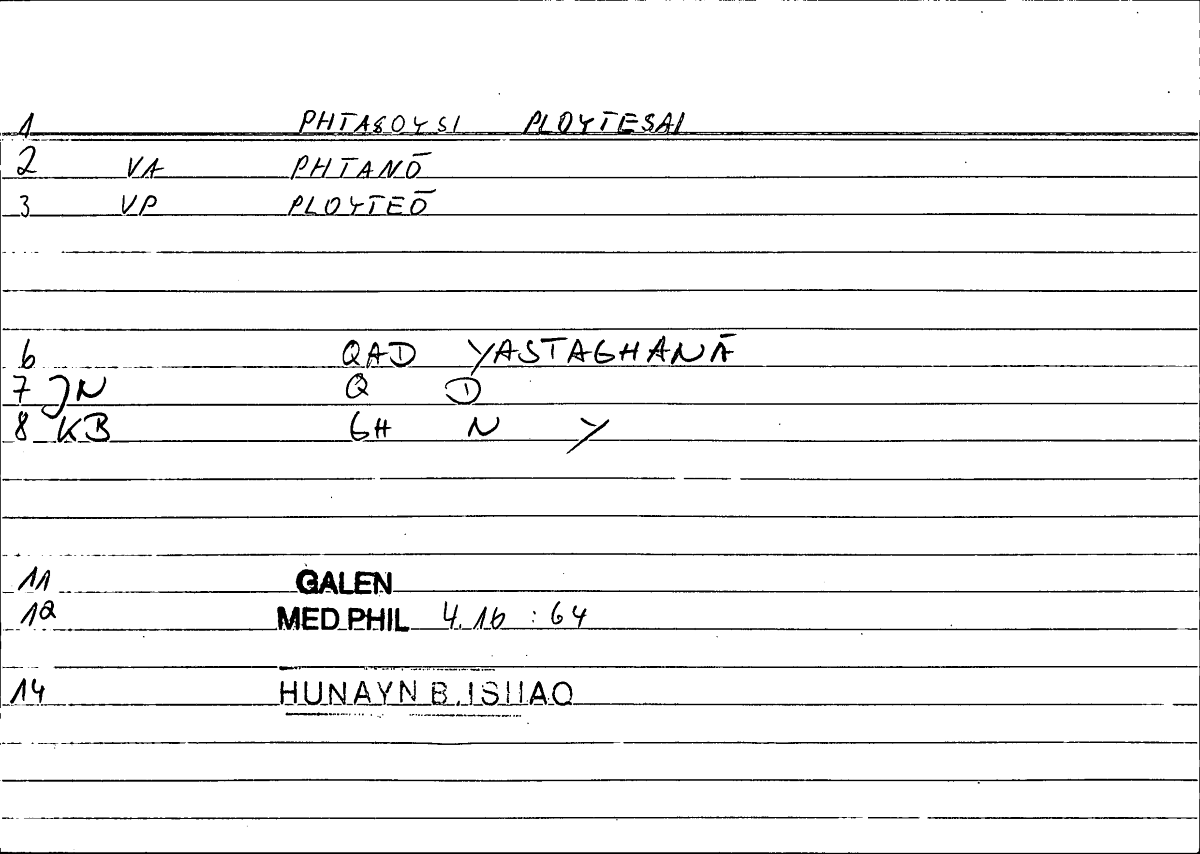 1 PHTASOYSI PLOYTESAI
2 VA PHTANŌ
3 VP PLOYTEŌ
6 QAD YASTAGHANĀ
7 JN Q D
8 KB GH N Y
11 GALEN
12 MED PHIL 4.16 : 64
14 HUNAYN B. ISHAQ